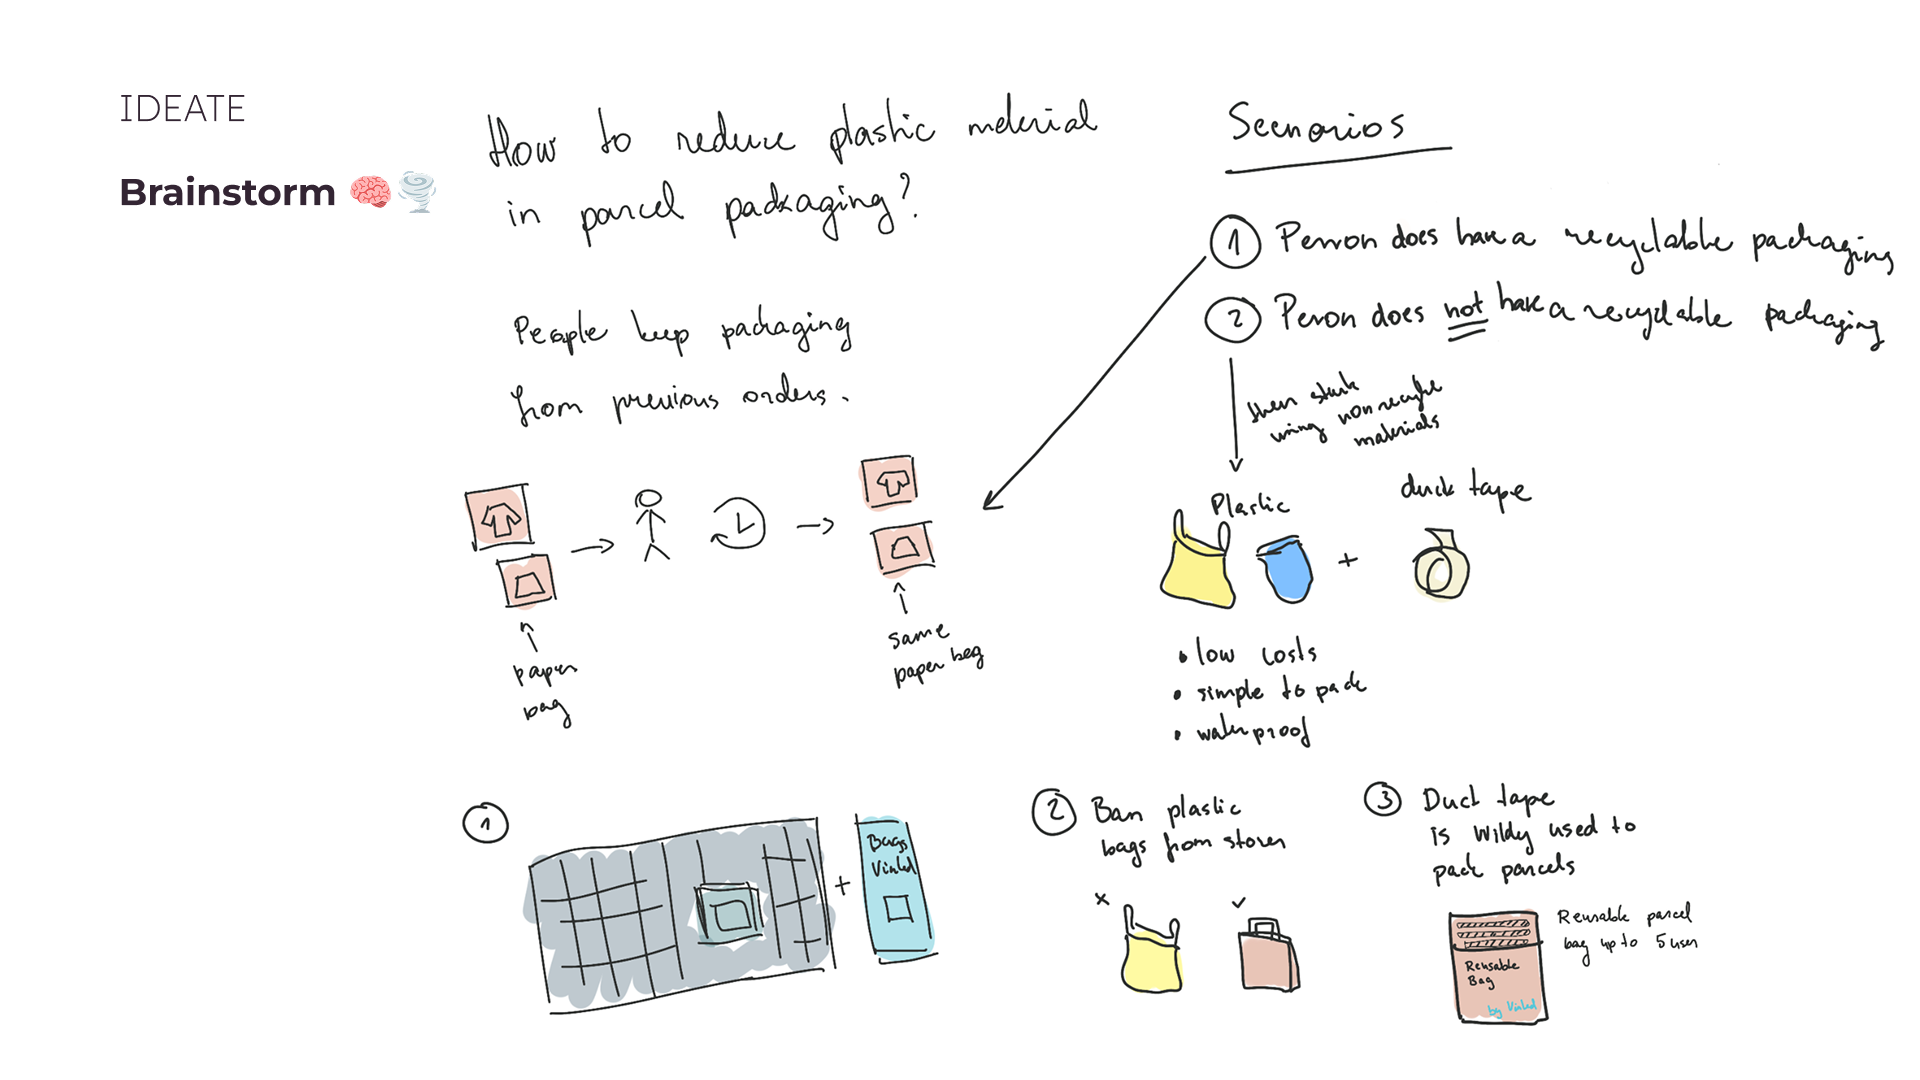 IDEATE
Brainstorm
How to reduce plastic material
in parcel packaging?
People keep packaging
from previous orders.
paper
bag
same
paper bag
Scenarios
1 Person does have a recyclable packaging
2 Person does not have a recyclable packaging
then start
using nonrecycle
materials
Plastic
+
duck tape
• low costs
• simple to pack
• waterproof
1
+
Bags
Vinted
2 Ban plastic
bags from stores
x
3 Duct tape
is wildy used to
pack parcels
Reusable
Bag
by Vinted
Reusable parcel
bag up to 5 uses